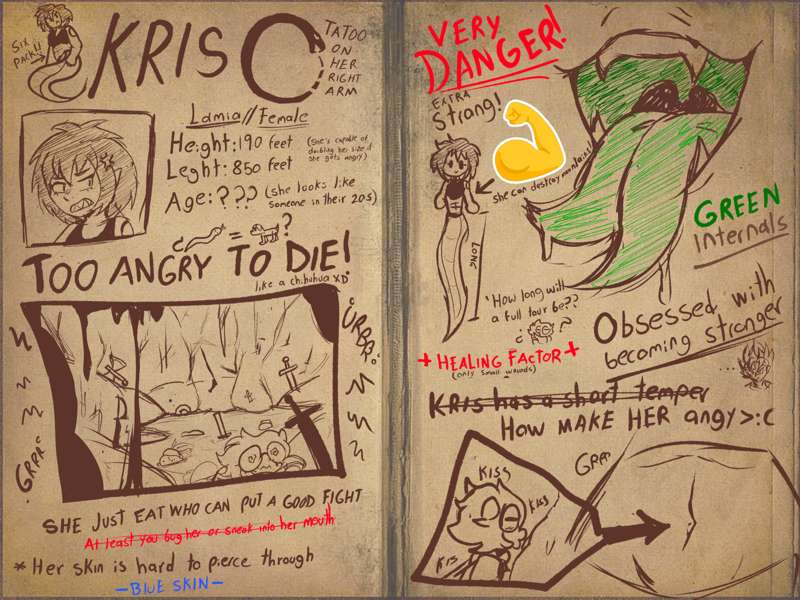 SIX
PACK!!
KRIS
TATOO
ON
HER
RIGHT
ARM
Lamia//Female
Height: 190 feet
(She's capable of
doubling her size if
she gets angry)
Leght: 850 feet
Age: ??? (she looks like
someone in their 20s)
¿ = ?
TOO ANGRY TO DIE!
like a chihuhua XD
GRRR°
°URRR°
SHE JUST EAT WHO CAN PUT A GOOD FIGHT
At least you bug her or sneak into her mouth
* Her skin is hard to pierce through
—BLUE SKIN—
VERY
DANGER!
EXTRA
Strong!
she can destroy mountains!
LONG
GREEN
Internals
'How long will
a full tour be??
¿ ?
+ HEALING FACTOR +
(only small wounds)
Obsessed with
becoming stronger
...
KRIS has a short temper
HOW MAKE HER angy >:C
GRRR
KISS
KISS
KISS